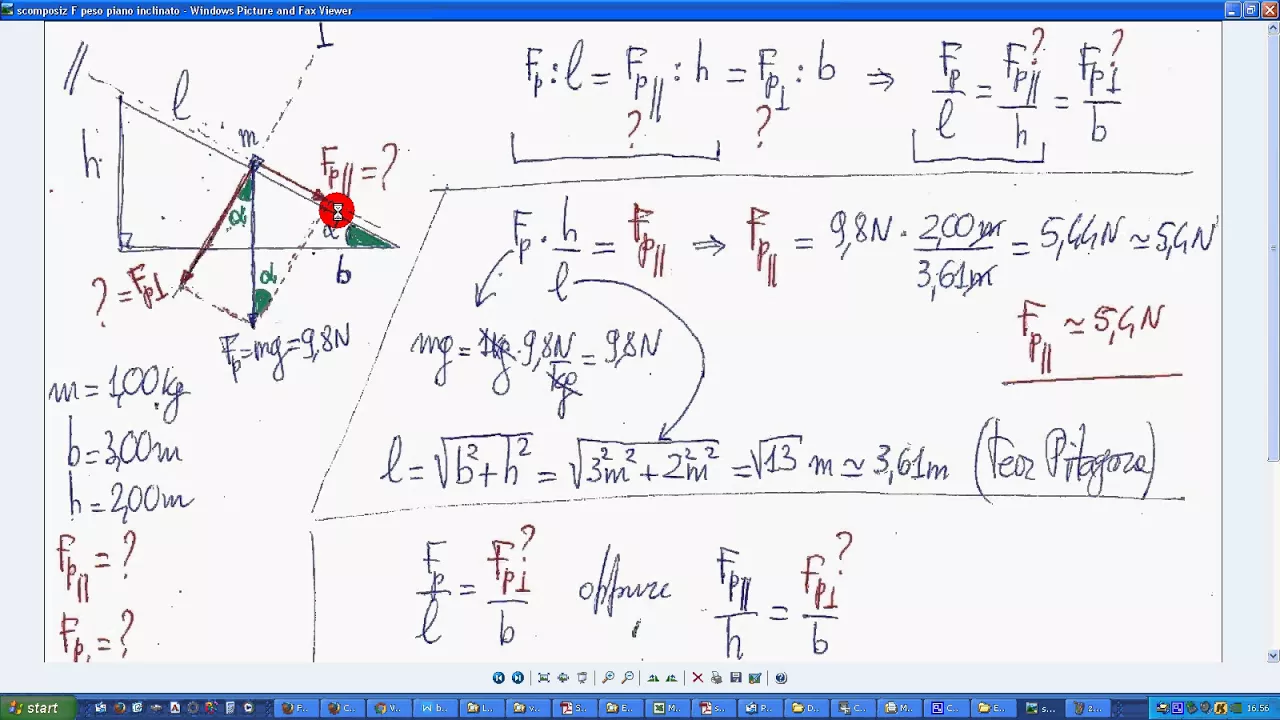 scomposiz F peso piano inclinato - Windows Picture and Fax Viewer
//
⊥
l
h
m
F_p// = ?
α
α
α
b
? = F_p⊥
F_p = mg = 9,8N
m = 1,00kg
b = 3,00m
h = 2,00m
F_p// = ?
F_p = ?
F_p : l = F_p// : h = F_p⊥ : b ⇒ F_p/l = F_p///h = F_p⊥/b
? ? ? ?
F_p · h/l = F_p// ⇒ F_p// = 9,8N · 2,00m/3,61m = 5,44N ≃ 5,4N
F_p// ≃ 5,4N
mg = 1kg · 9,8N/kg = 9,8N
l = √(b² + h²) = √(3²m² + 2²m²) = √13 m ≃ 3,61m (Teor Pitagora)
F_p/l = F_p⊥?/b oppure F_p///h = F_p⊥?/b
start
16.56